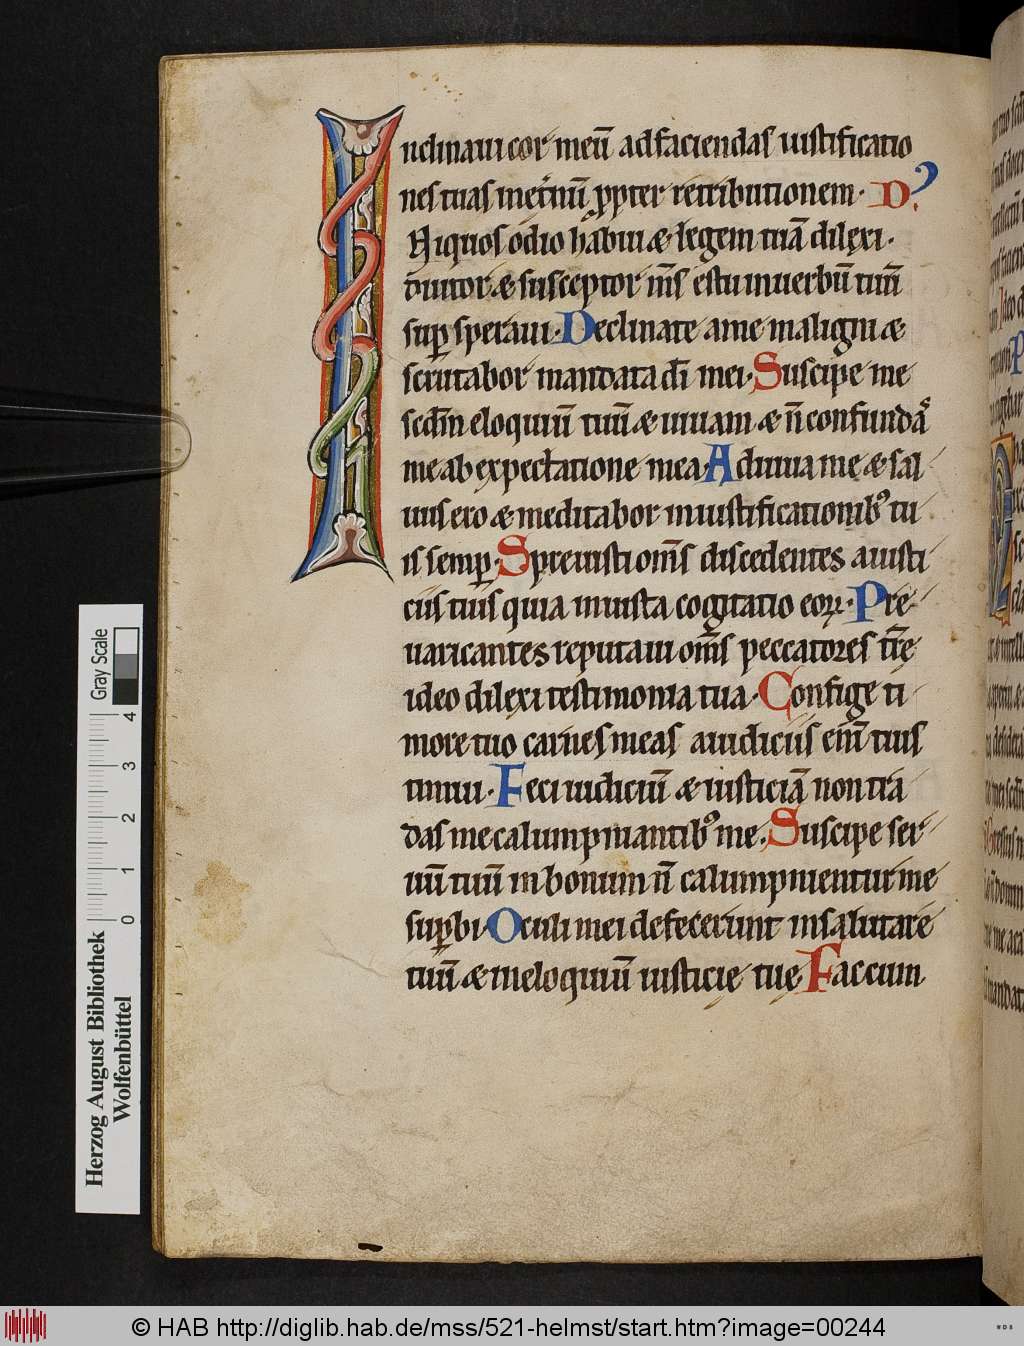 Inclinaui cor meū ad faciendas iustificatio
nes tuas inet̄nū ꝓpter retributionem· D̾
Niquos odio habui & legem tuā dilexi·
diutor & susceptor m̄s es tu inuerbū tuū
suꝑ speraui· Declinate ame maligni &
scrutabor mandata dī mei· Suscipe me
scd̄m eloquiū tuū & uiuam & n̄ confundas
me ab expectatione mea· Adiuua me & sal
uus ero & meditabor iniustificationibꝰ tu
is semꝑ· Spreuisti om̄s discedentes aiusti
ciis tuis quia iniusta cogitatio eoꝝ· Pre
uaricantes reputaui om̄s peccatores t̄rę
ideo dilexi testimonia tua· Confige ti
more tuo carnes meas aiudiciis enī tuis
timui· Feci iudiciū & iusticiā non tra
das me calumpniantibꝰ me· Suscipe ser
uū tuū inbonum n̄ calumpnientur me
suꝑbi· Oculi mei defecerunt insalutare
tuū & ineloquiū iusticię tuę Fac cum
Gray Scale
0 1 2 3 4
Herzog August Bibliothek
Wolfenbüttel
© HAB http://diglib.hab.de/mss/521-helmst/start.htm?image=00244